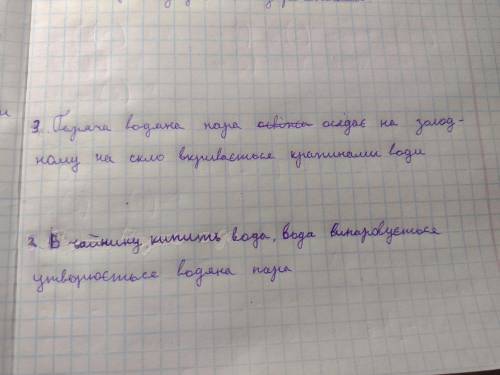 3. Гаряча водяна пара осідає на холод-
ному на скло вкривається крапинами води
2. В чайнику кипить вода, вода випаровується
утворюється водяна пара